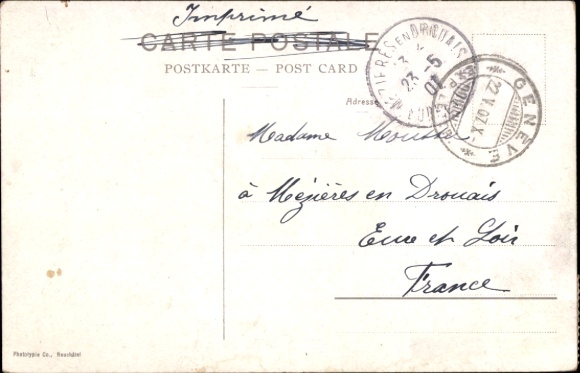 Imprimé
CARTE POSTALE
POSTKARTE — POST CARD
MEZIERES EN DROUAIS
23 -5
07
GENÈVE
22.V.07.X
Adresse
Madame
à Mézières en Drouais
Eure et Loir
France
Phototypie Co., Neuchâtel